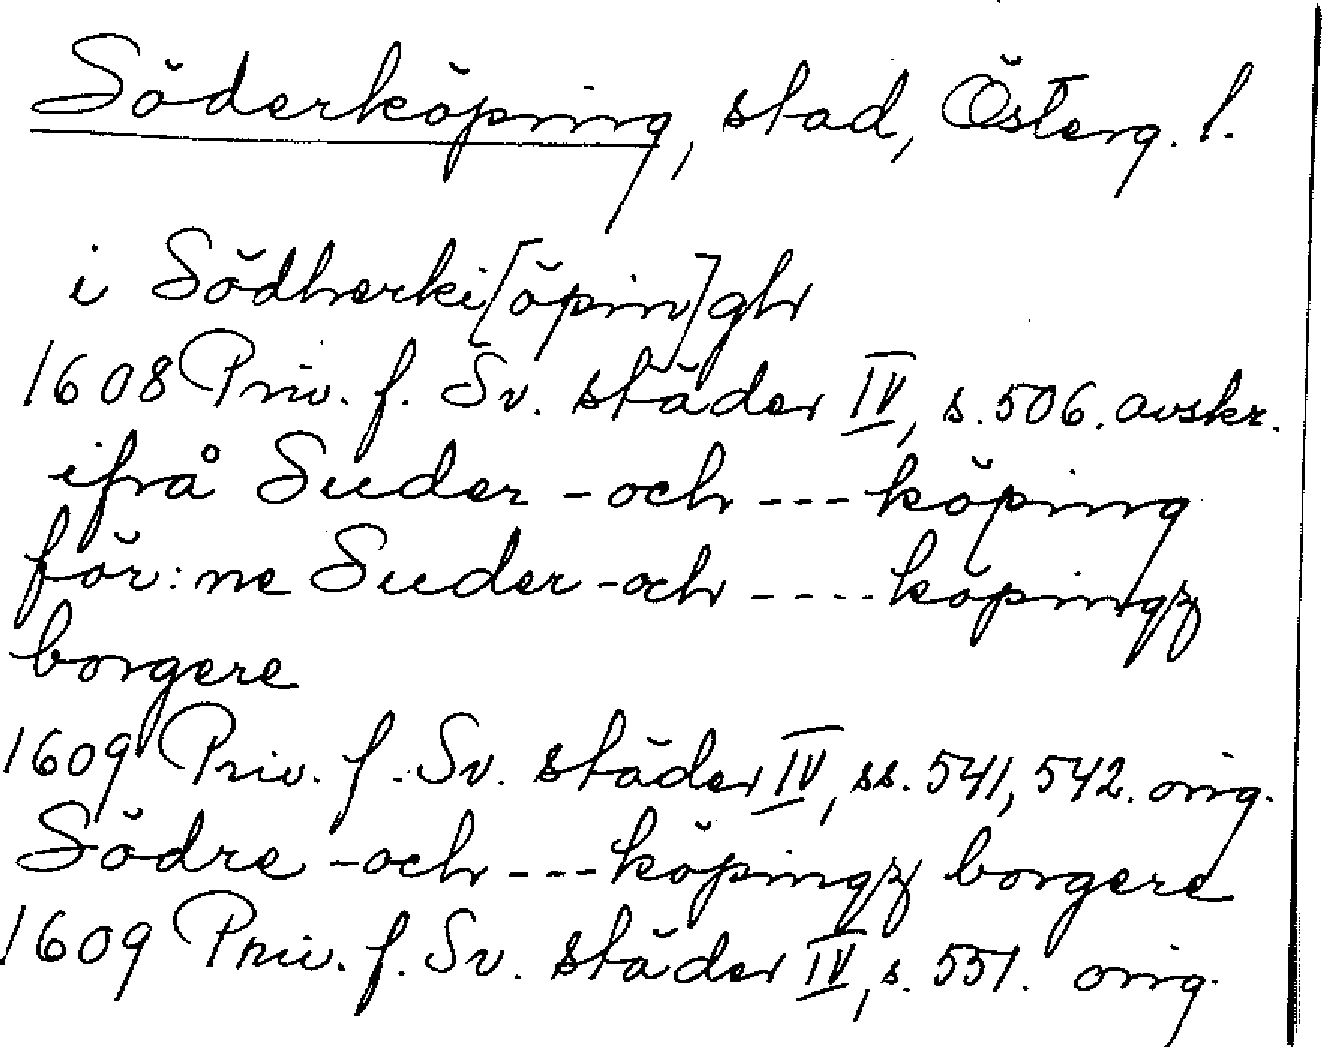 Söderköping, stad, Österg. l.
i Södherki[öpin]gh
1608 Priv. f. Sv. städer IV, s. 506. avskr.
ifrå Suder - och --- köping
för:ne Suder - och ---- köpingz
borgere
1609 Priv. f. Sv. städer IV, ss. 541, 542. orig.
Södre - och --- köpingz borgere
1609 Priv. f. Sv. städer IV, s. 551. orig.